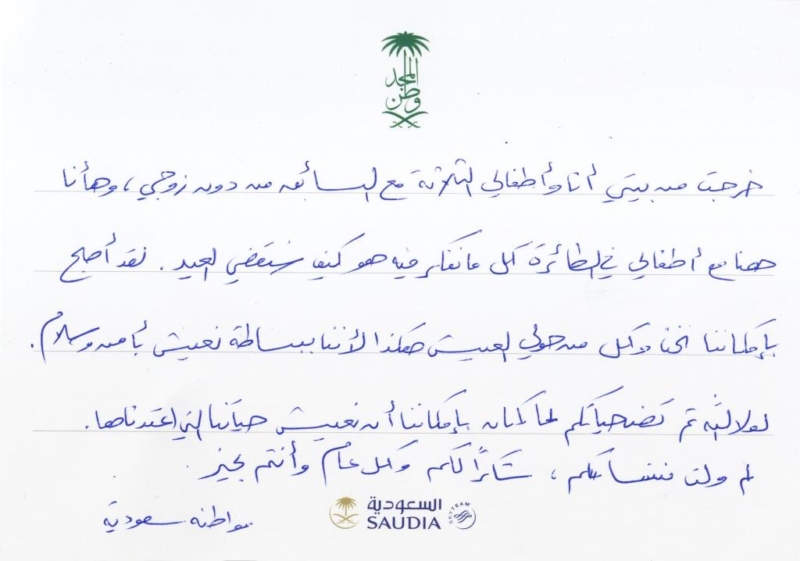 وطن المجد
خرجت من بيتي أنا وأطفالي الثلاثة مع السائق من دون زوجي، وهأنا
هنا مع أطفالي في الطائرة كل ما نفكر فيه هو كيف سنقضي العيد. لقد أصبح
بإمكاننا نحن وكل من حولي العيش هكذا لأننا ببساطة نعيش بأمن وسلام.
لولا الله ثم تضحياتكم لما كان بإمكاننا أن نعيش حياتنا التي اعتدناها.
لم ولن ننساكم، شكرًا لكم وكل عام وأنتم بخير.
مواطنة سعودية
السعودية
SAUDIA
SKYTEAM